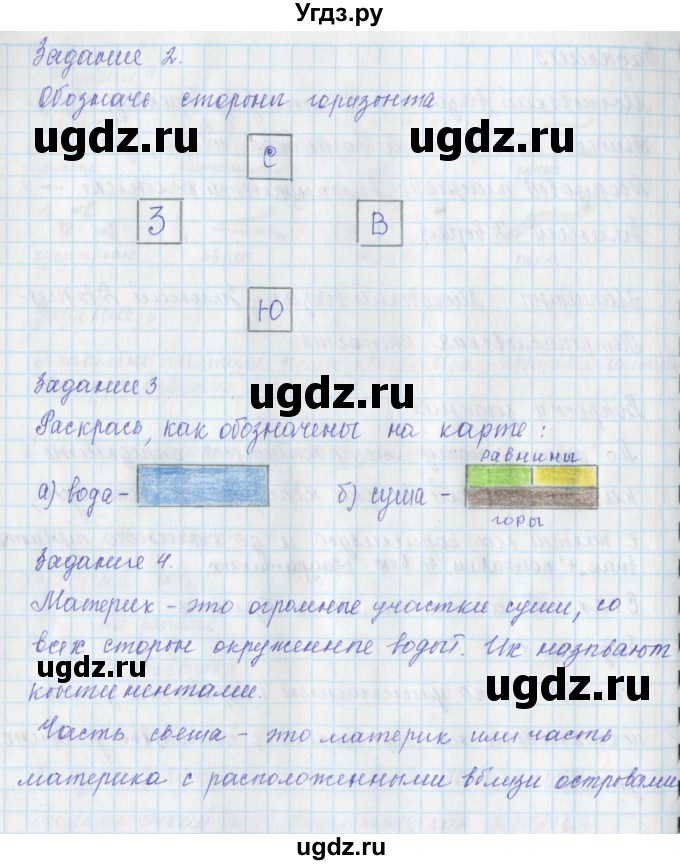 Угдз.ру
Задание 2.
Обозначь стороны горизонта
ugdz.ru ugdz.ru
С
З В
Ю
Задание 3
ugdz.ru
Раскрась, как обозначены на карте:
равнины
а) вода - б) суша -
горы
Задание 4.
ugdz.ru ugdz.ru
Материк - это огромные участки суши, со
всех сторон окруженные водой. Их называют
ugdz.ru ugdz.ru
континентами.
Часть света - это материк или часть
материка с расположенными вблизи островами
ugdz.ru